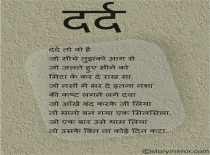 दर्द
दर्द तो वो है
जो सीधे तुझको आग से
जो जलते हुए सीने को
मिटा के कर दे राख सा.
जो नसों में भर दे इतना नशा
की कष्ट लगने लगे दवा
जो आँखें बंद करके जी लिया
तो मानो बन गया एक सिलसिला.
जो एक बार उसे थाम लिया
तो उसके बिन ना कोई दिन कटा.
©storymirror.com